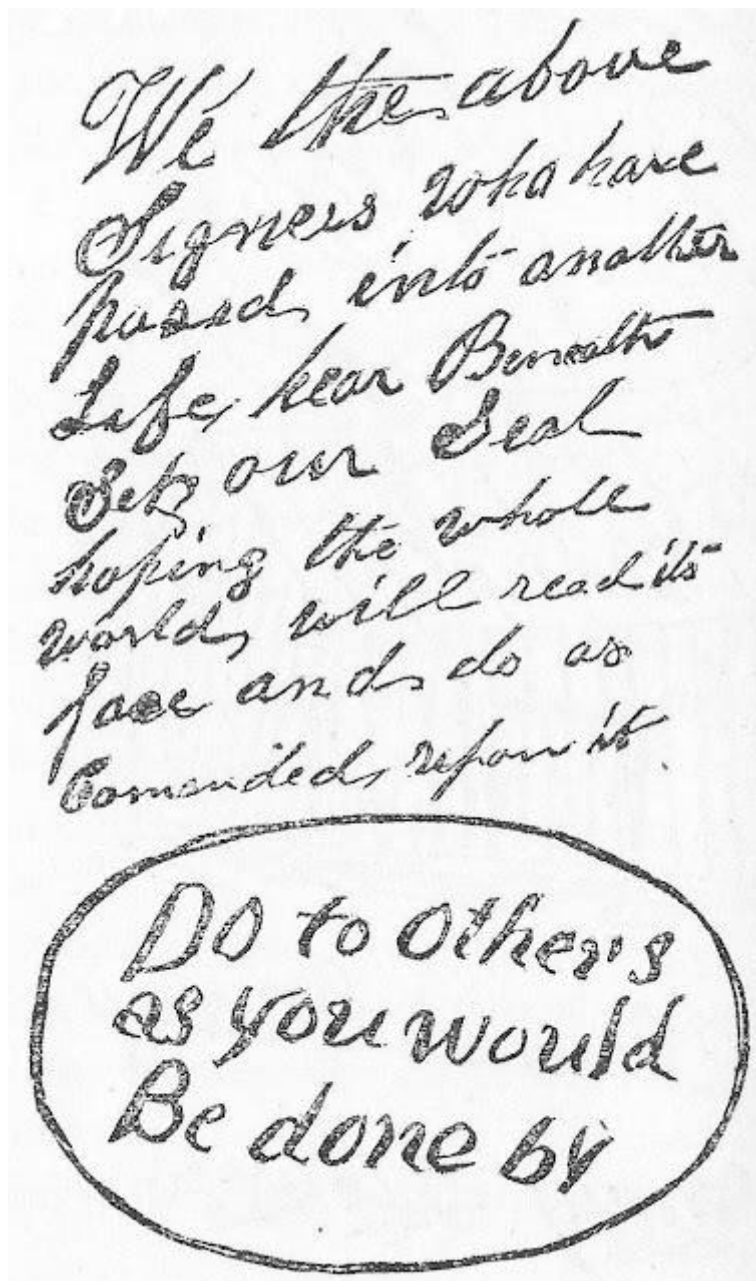 We the above
Signers who have
passed into another
Life, hear Beneath
Set our Seal
hoping the whole
world will read its
face and do as
Comended upon it.
DO to others
as you would
Be done by